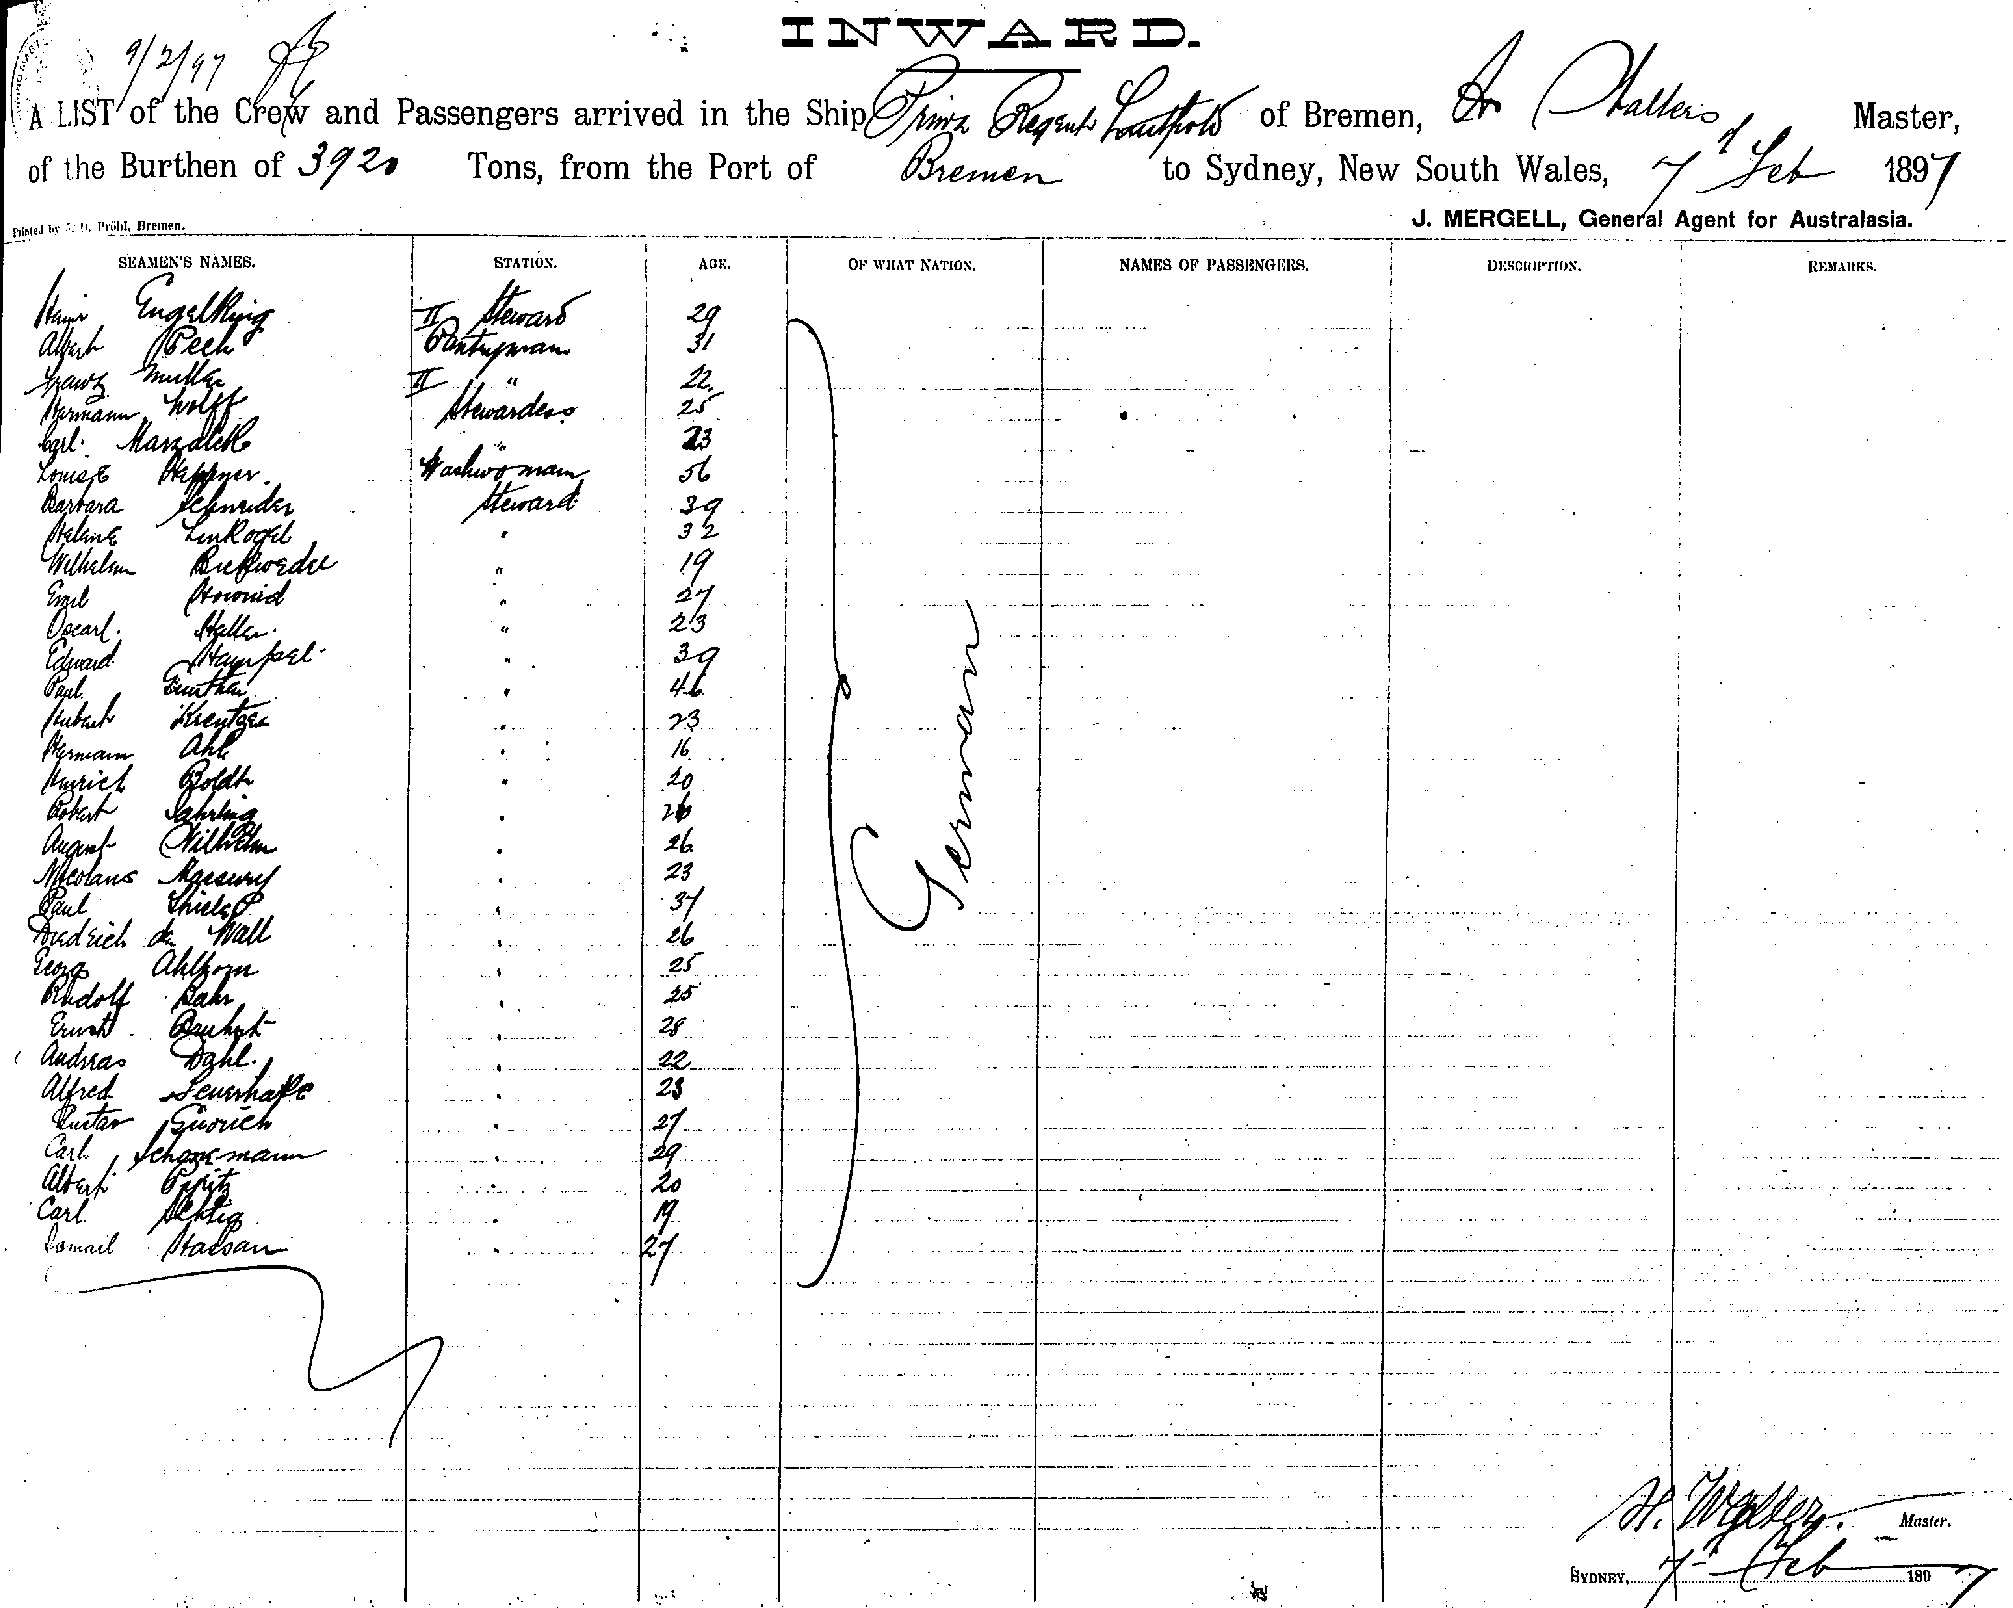 INWARD.
9/2/97
A LIST of the Crew and Passengers arrived in the Ship Prinz Regent Luitpold of Bremen, Walters Master,
of the Burthen of 3920 Tons, from the Port of Bremen to Sydney, New South Wales, 7th Feb 1897
Printed by Pröhl, Bremen.
J. MERGELL, General Agent for Australasia.
SEAMEN'S NAMES. STATION. AGE. OF WHAT NATION. NAMES OF PASSENGERS. DESCRIPTION. REMARKS.
Engelking II Steward 29
Albert Pech Pantryman 31
Franz Muller II " 22
Hermann Wolff Stewardess 25
Carl Marzalek " 23
Louise Heppner Washwoman 56
Barbara Schneider Steward 39
Helene Linkogel " 32
Wilhelm " 19
Emil " 27
Oscar Haller " 23
Edward Hampel " 39
Paul Gunther " 46
Hubert Kreutzer " 23
Hermann Ahl " 16
Hinrich Boldt " 20
Robert Sahrling " 26
August Wilhelm " 26
Nicolaus " 23
Paul Thiele " 37
Diedrich de Wall " 26
Georg Ahlhorn " 25
Rudolf Bahr " 25
Ernst " 28
Andreas Dahl " 22
Alfred " 23
Gustav " 27
Carl Schönemann " 29
Albert " 20
Carl " 19
Ismail Hassan " 27
German
H. Walter. Master.
SYDNEY, 7th Feb 1897